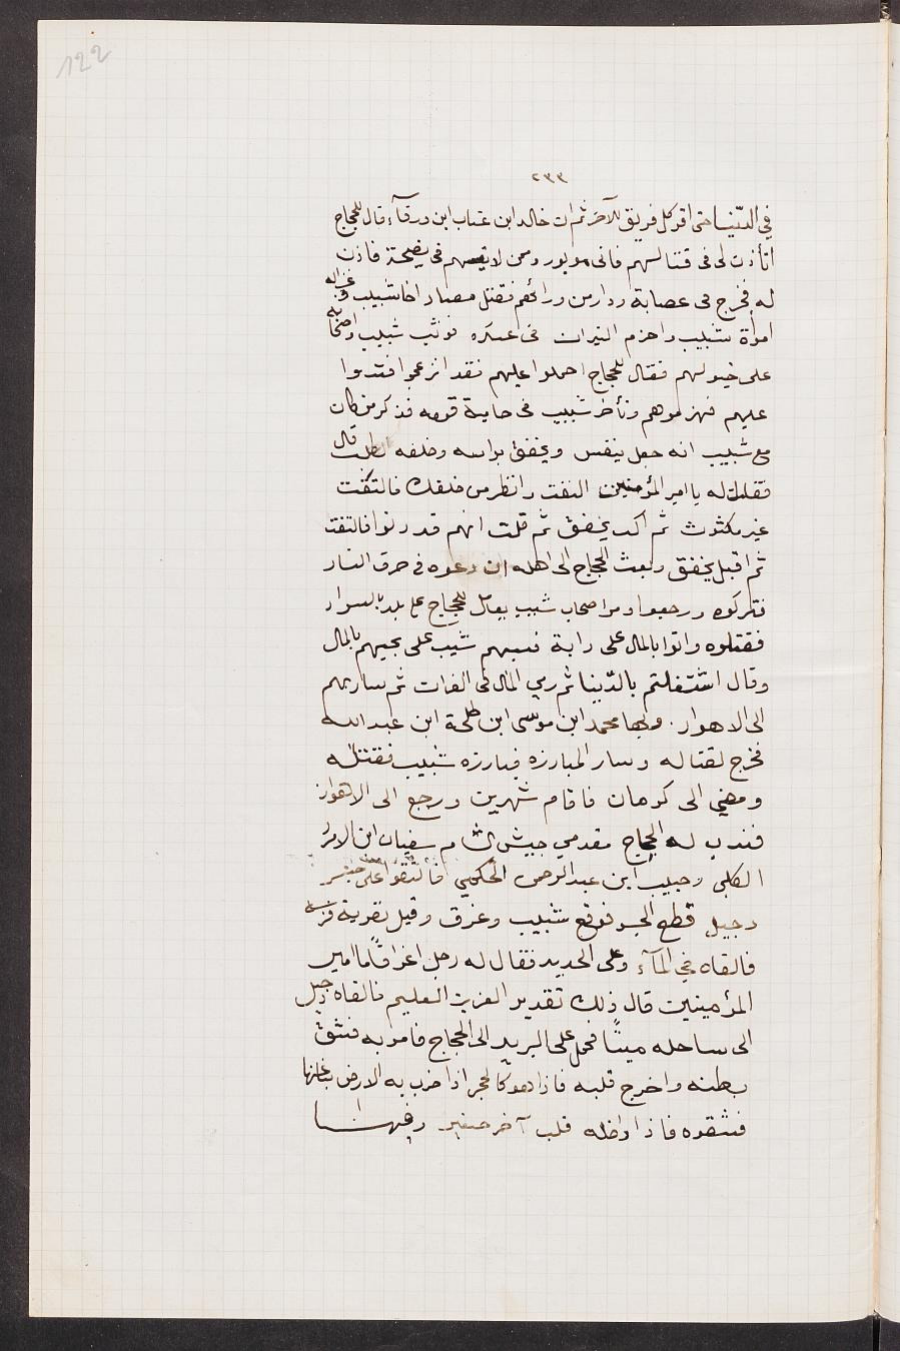 122
٢٣٣
في الدنيا حتى اقر كل فريق للآخر ثم ان خالد ابن عتاب ابن ورقآء قال للحجاج
اتأذن لى فى قتالهم فانى موتور ومن لا يتهم فى نصيحة فاذن
له فخرج فى عصابة ودار من ورائهم فقتل مصاد اخا شبيب وغزاله
امرأة شبيب واضرم النيران فى عسكره فوثب شبيب واصحابه
على خيولهم فقال للحجاج احملوا عليهم فقد انزعجوا فشدوا
عليهم فهزموهم وتأخر شبيب فى حامية قومه فذكر من كان
مع شبيب انه جعل ينفس ويخفق براسه وخلفه الطلب قال
فقلت له يا امير المؤمنين التفت وانظر من خلفك فالتفت
غير مكترث ثم اكب يخفق ثم قلت انهم قد دنوا فالتفت
ثم اقبل يخفق وبعث الحجاج الى اهله ان دعوه فى حرق النار
فتركوه ورجعوا ومر اصحاب شبيب بعامل للحجاج على بلد بالسواد
فقتلوه واتوا بالمال على دابة فسبهم شبيب على مجيهم بالمال
وقال اشتغلتم بالدنيا ثم رمي المال فى الفرات ثم سار بهم
الى الاهواز وبها محمد ابن موسى ابن طلحة ابن عبد الله
فخرج لقتاله وسار المبارزه فبارزه شبيب فقتله
ومضي الى كرمان فاقام شهرين ورجع الى الاهواز
فندب له الحجاج مقدمي جيش الشام سفيان ابن الابرد
الكلبى وحبيب ابن عبد الرحمن الحكمي فالتقوا على جسر
دجيل قطع الجسر فوقع شبيب وغرق وقيل نفر به فرسه
فالقاه في المآء وعلى الحديد فقال له رجل اغراقاً يا امير
المؤمنين قال ذلك تقدير العزيز العليم فالقاه دجيل
الى ساحله ميتاً فحمل على البريد الى الحجاج فامر به فشق
بطنه واخرج قلبه فاذا هو كالحجر اذا ضرب به الارض
فشقوه فاذا داخله قلب آخر صغير